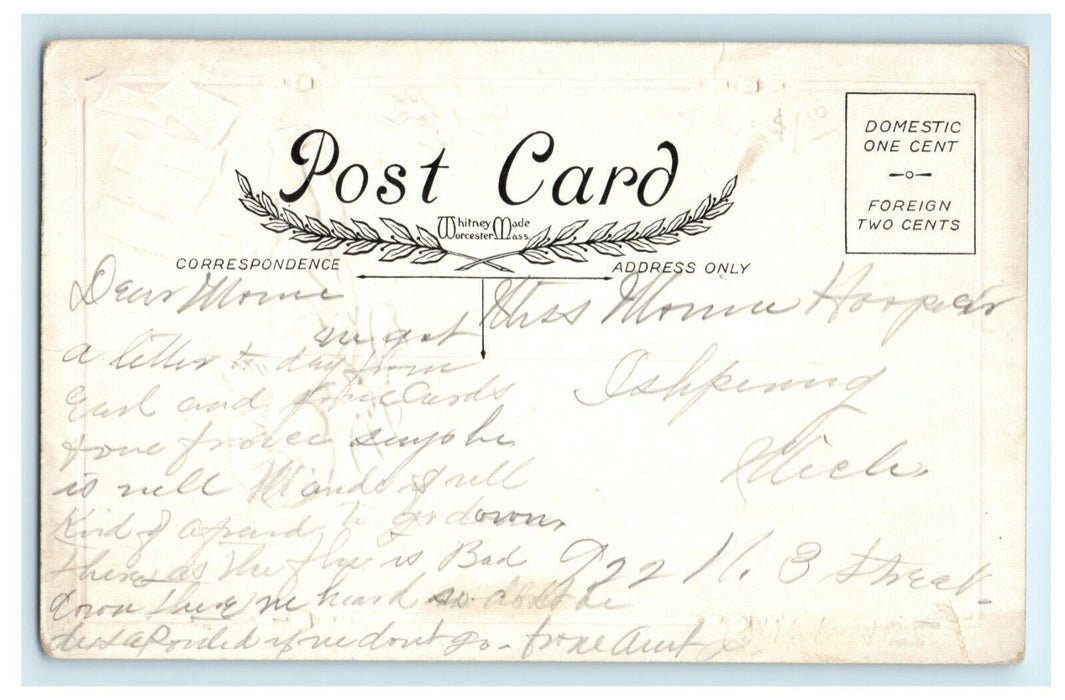 Post Card
Whitney Made
Worcester Mass.
DOMESTIC
ONE CENT
FOREIGN
TWO CENTS
CORRESPONDENCE
ADDRESS ONLY
Dear
we got
a letter to day from
Earl and Cards
he
is well and is well
Kind of afraid to go down
there as the flue is Bad
down there we heard
if we dont go - Aunt
Miss Hooper
Ishpeming
Mich
922 N. 3 Street